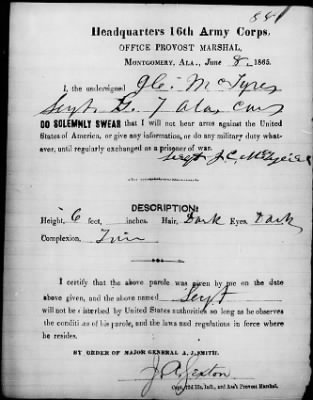 Headquarters 16th Army Corps,
OFFICE PROVOST MARSHAL,
MONTGOMERY, ALA., June 8, 1865.
I, the undersigned
Sergt. G. 7 Ala, Cav
DO SOLEMNLY SWEAR that I will not bear arms against the United
States of America, or give any information, or do any military duty what-
ever, until regularly exchanged as a prisoner of war.
Sergt J. C.
DESCRIPTION:
Height, 6 feet, inches. Hair, Dark Eyes, Dark
Complexion,
I certify that the above parole was given by me on the date
above given, and the above named Sergt
will not be disturbed by United States authorities so long as he observes
the conditions of his parole, and the laws and regulations in force where
he resides.
BY ORDER OF MAJOR GENERAL A. J. SMITH.
J. A. Sexton
Capt. 72d Ills. Infl., and Ass't Provost Marshal.